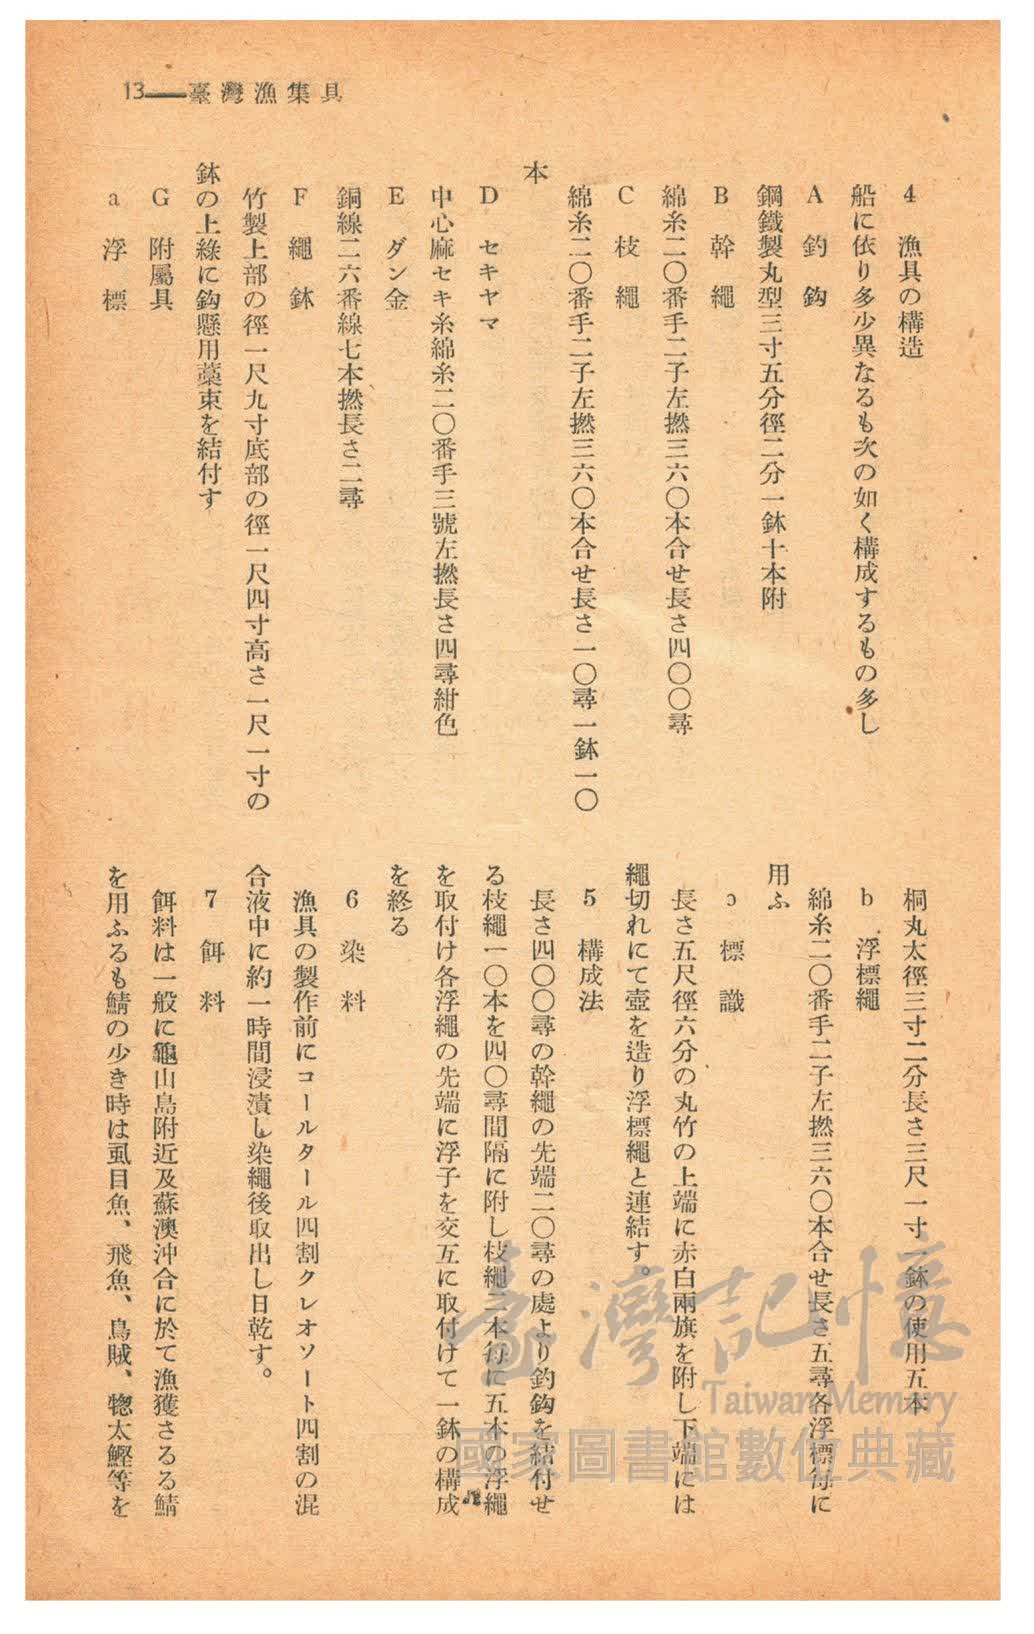 13——臺灣漁業具
4 漁具の構造
船に依り多少異なるも次の如く構成するもの多し
A 釣鈎
鋼鐵製丸型三寸五分徑二分一鉢十本附
B 幹繩
綿糸二〇番手二子左撚三六〇本合せ長さ四〇〇尋
C 枝繩
綿糸二〇番手二子左撚三六〇本合せ長さ一〇尋一鉢一〇
本
D セキヤマ
中心麻セキ糸綿糸二〇番手三號左撚長さ四尋紺色
E ダン金
銅線二六番線七本撚長さ二尋
F 繩鉢
竹製上部の徑一尺九寸底部の徑一尺四寸高さ一尺一寸の
鉢の上緣に鈎懸用藁束を結付す
G 附屬具
a 浮標
桐丸太徑三寸二分長さ三尺一寸一鉢の使用五本
b 浮標繩
綿糸二〇番手二子左撚三六〇本合せ長さ五尋各浮標每に
用ふ
c 標識
長さ五尺徑六分の丸竹の上端に赤白兩旗を附し下端には
繩切れにて壺を造り浮標繩と連結す。
5 構成法
長さ四〇〇尋の幹繩の先端二〇尋の處より釣鈎を結付せ
る枝繩一〇本を四〇尋間隔に附し枝繩二本每に五本の浮繩
を取付け各浮繩の先端に浮子を交互に取付けて一鉢の構成
を終る
6 染料
漁具の製作前にコールタール四割クレオソート四割の混
合液中に約一時間浸漬し染繩後取出し日乾す。
7 餌料
餌料は一般に龜山島附近及蘇澳沖合に於て漁獲さるる鯖
を用ふるも鯖の少き時は虱目魚、飛魚、烏賊、惣太鰹等を
臺灣記憶
Taiwan Memory
國家圖書館數位典藏